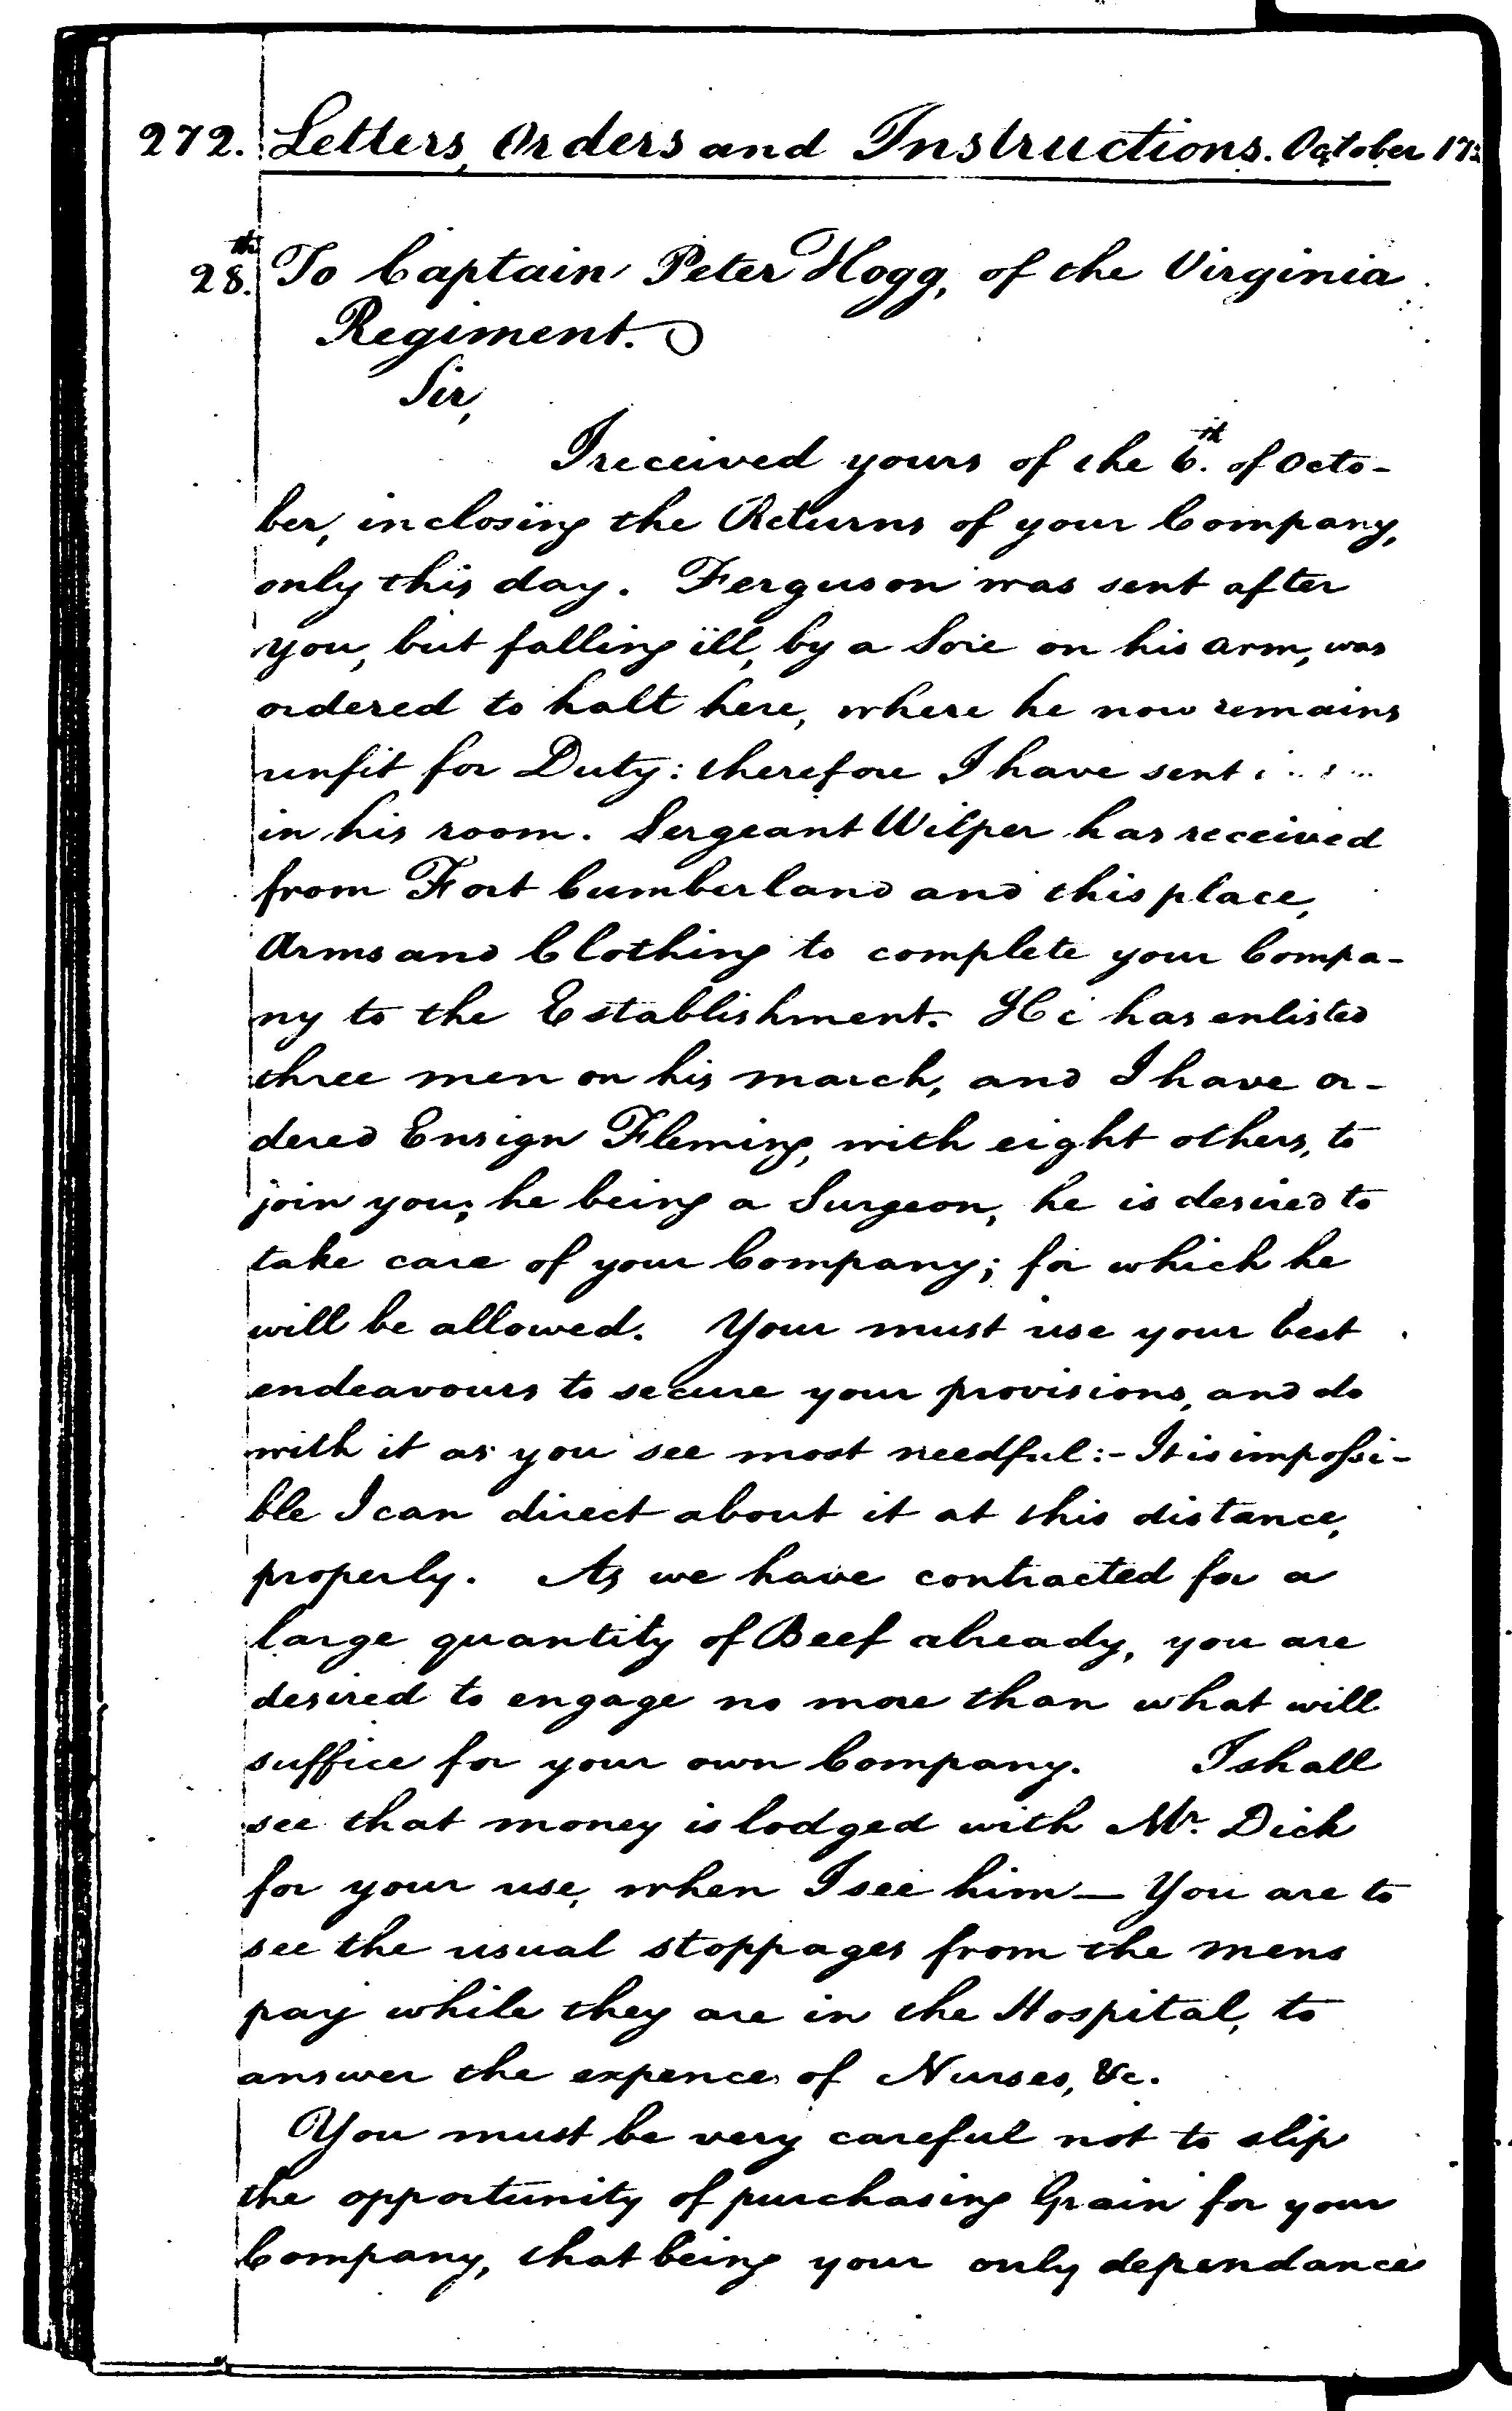 272. Letters, Orders and Instructions. October 175
28.th To Captain Peter Hogg, of the Virginia
Regiment.
Sir,
I received yours of the 6.th of Octo-
ber, inclosing the Returns of your Company,
only this day. Ferguson was sent after
you, but falling ill, by a Sore on his arm, was
ordered to halt here, where he now remains
unfit for Duty: therefore I have sent
in his room. Sergeant Wilper has received
from Fort Cumberland and this place,
Arms and Clothing to complete your Compa-
ny to the Establishment. He has enlisted
three men on his march, and I have or-
dered Ensign Fleming, with eight others, to
join you; he being a Surgeon, he is desired to
take care of your Company; for which he
will be allowed. Your must use your best
endeavours to secure your provisions, and do
with it as you see most needful:- It is impossi-
ble I can direct about it at this distance,
properly. As we have contracted for a
large quantity of Beef already, you are
desired to engage no more than what will
suffice for your own Company. I shall
see that money is lodged with Mr. Dick
for your use, when I see him— You are to
see the usual stoppages from the mens
pay while they are in the Hospital, to
answer the expence of Nurses, &c.
You must be very careful not to slip
the opportunity of purchasing Grain for your
Company, that being your only dependance